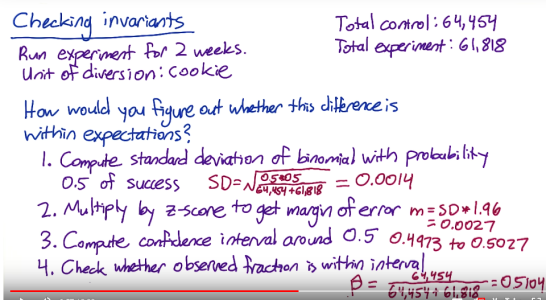 Checking invariants
Total control: 64,454
Run experiment for 2 weeks.
Total experiment: 61,818
Unit of diversion: cookie
How would you figure out whether this difference is
within expectations?
1. Compute standard deviation of binomial with probability
0.5 of success SD=√(0.5*0.5 / 64,454+61,818) = 0.0014
2. Multiply by z-score to get margin of error m = SD*1.96
= 0.0027
3. Compute confidence interval around 0.5 0.4973 to 0.5027
4. Check whether observed fraction is within interval
p̂ = 64,454 / 64,454+61,818 = 0.5104